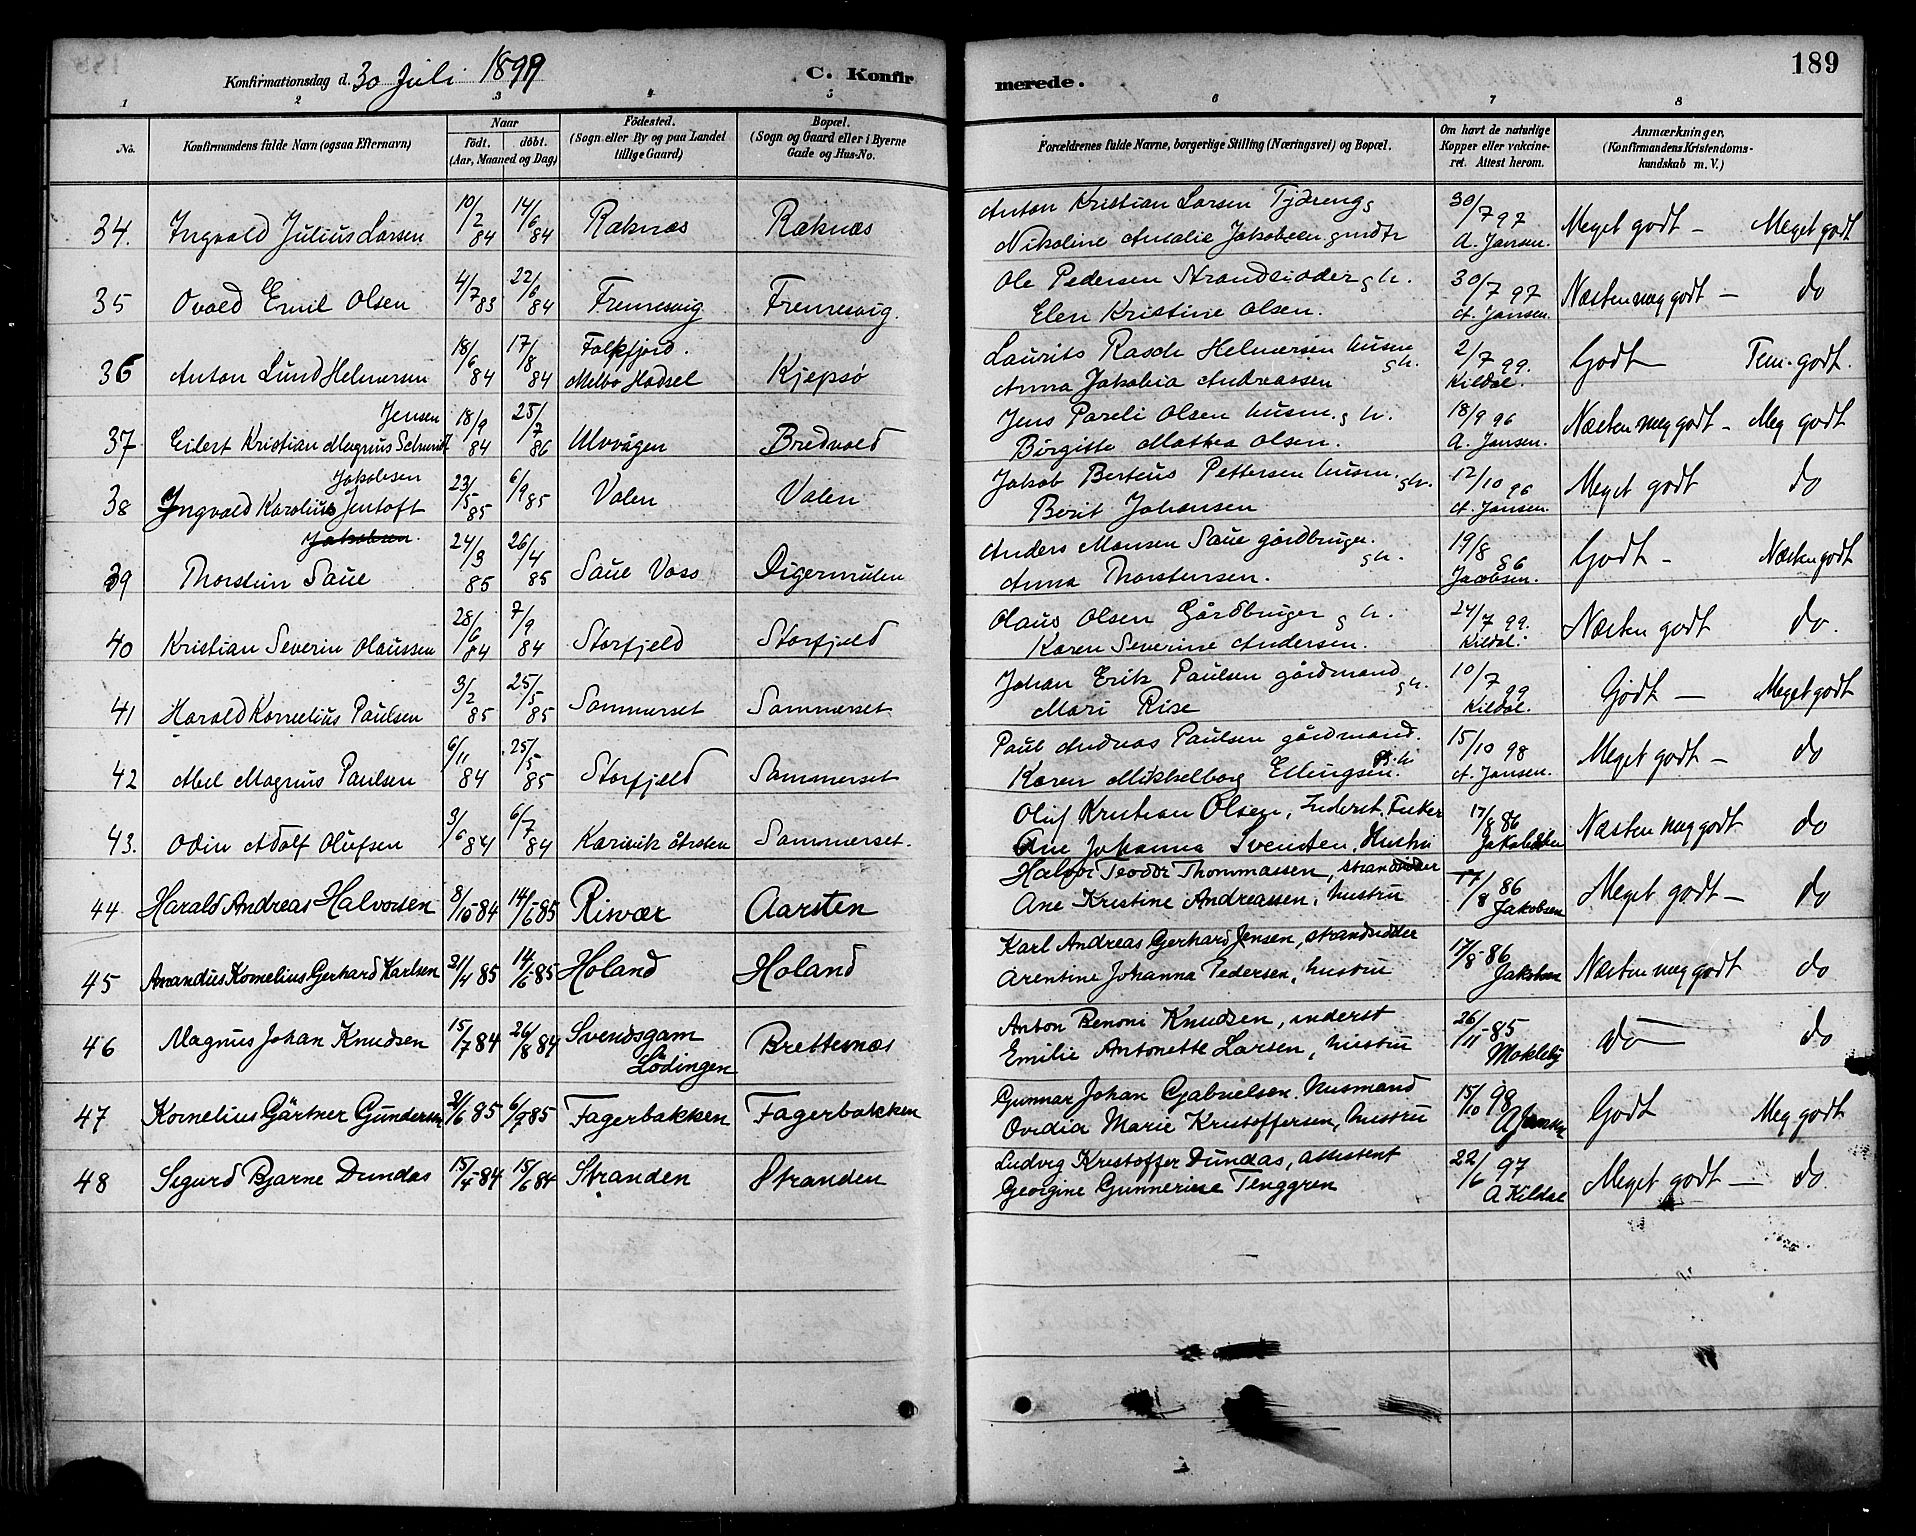 Konfirmationsdag d. 30 Juli 1899
C. Konfirmerede.
189
1 2 3 4 5 6 7 8
No.
Konfirmandens fulde Navn (ogsaa Efternavn)
Naar
födt. döbt.
(Aar, Maaned og Dag)
Födested.
(Sogn eller By og paa Landet
tillige Gaard)
Bopæl.
(Sogn og Gaard eller i Byerne
Gade og Hus-No.
Forældrenes fulde Navne, borgerlige Stilling (Næringsvei) og Bopæl.
Om havt de naturlige
Kopper eller vakcine-
ret. Attest herom.
Anmærkninger,
(Konfirmandens Kristendoms-
kundskab m. V.)
34. Ingvald Julius Larsen 10/2 84 14/6 84 Raknæs Raknæs
Anton Kristian Larsen
Nikoline Amalie Jakobsen
30/7 97 A. Jansen. Meget godt – Meget godt
35 Ovald Emil Olsen 4/7 83 22/6 84
Ole Pedersen Strandsidder g h.
Elen Kristine Olsen.
30/7 97 A. Jansen. Næsten meg godt – do
36 Anton Lund Helmersen 18/6 84 17/8 84 Falkfjord. Melbo Hadsel Kjepsø
Laurits Rasch Helmersen husm g h.
Anna Jakobia Andreassen
2/7 99. Kildal. Godt – Tem. godt.
37 Eilert Kristian Magnus Schmidt Jensen 18/9 84 25/7 86 Ulvvågen Bredvold
Jens Pareli Olsen husm. g h.
Birgitte Mathea Olsen.
18/9 96 A. Jansen. Næsten meg godt – Meg godt
38 Ingvald Karolius Jentoft Jakobsen 23/5 85 6/9 85 Valen Valen
Jakobsen.
Jakob Berteus Pettersen husm. gh.
Berit Johansen
12/10 96 A. Jansen. Meget godt do
39 Thorstein Saue 24/3 85 26/4 85 Saue Voss Digermulen
Anders Monsen Saue gårdbruger. gh.
Anna Thorstensen.
19/8 86 Jacobsen. Godt – Næsten godt
40 Kristian Severin Olaussen 28/6 84 7/9 84 Storfjeld Storfjeld
Olaus Olsen Gårdbruger g h.
Karen Severine Andersen.
24/7 99. Kildal. Næsten godt do.
41 Harald Kornelius Paulsen 3/2 85 25/5 85 Sommerset Sommerset
Johan Erik Paulsen gårdmand gh.
Mari Rise
10/7 99 Kildal. Godt – Meget godt
42 Abel Magnus Paulsen 6/11 84 25/5 85 Storfjeld Sommerset
Paul Andreas Paulsen gårdmand.
Karen Mikkelborg Ellingsen. g.h
15/10 98 A. Jansen. Meget godt – do
43. Odin Adolf Olufsen 3/6 84 6/7 84 Karivik Årsten Sommerset.
Oluf Kristian Olsen, Inderst, Fisker
Ane Johanna Svensten, Hustru
17/8 86 Jakobsen Næsten meg godt do
44 Harald Andreas Halvorsen 8/10-84 14/6-85 Risvær Aarsten
Halvor Teodor Thommassen, strandsidder
Ane Kristine Andreassen, hustru
17/8 86 Jakobsen Meget godt – do
45 Amandus Kornelius Gerhard Karlsen 21/4 85 14/6 85 Holand Holand
Karl Andreas Gerhard Jensen, strandsidder
Arentine Johanna Pedersen, hustru
17/8-86 Jakobsen Næsten meg godt do
46 Magnus Johan Knudsen 15/7 84 26/8 84 Svendsgam Lödingen Brettesnæs
Anton Benoni Knudsen, inderst
Emilie Antonette Larsen, hustru
26/11-85 Mokleby do – do
47 Kornelius Gärtner Gundersen 21/6 85 6/9 85 Fagerbakken Fagerbakken
Gunnar Johan Gabrielsen. Husmand
Ovidia Marie Kristoffersen, hustru
15/10 98 A Jansen Godt Meg godt
48 Sigurd Bjarne Dundas 15/4-84 15/6 84 Stranden Stranden
Ludvig Kristoffer Dundas, assistent
Georgine Gunnerine Tenggren
22/6 97 A Kildal Meget godt – do.